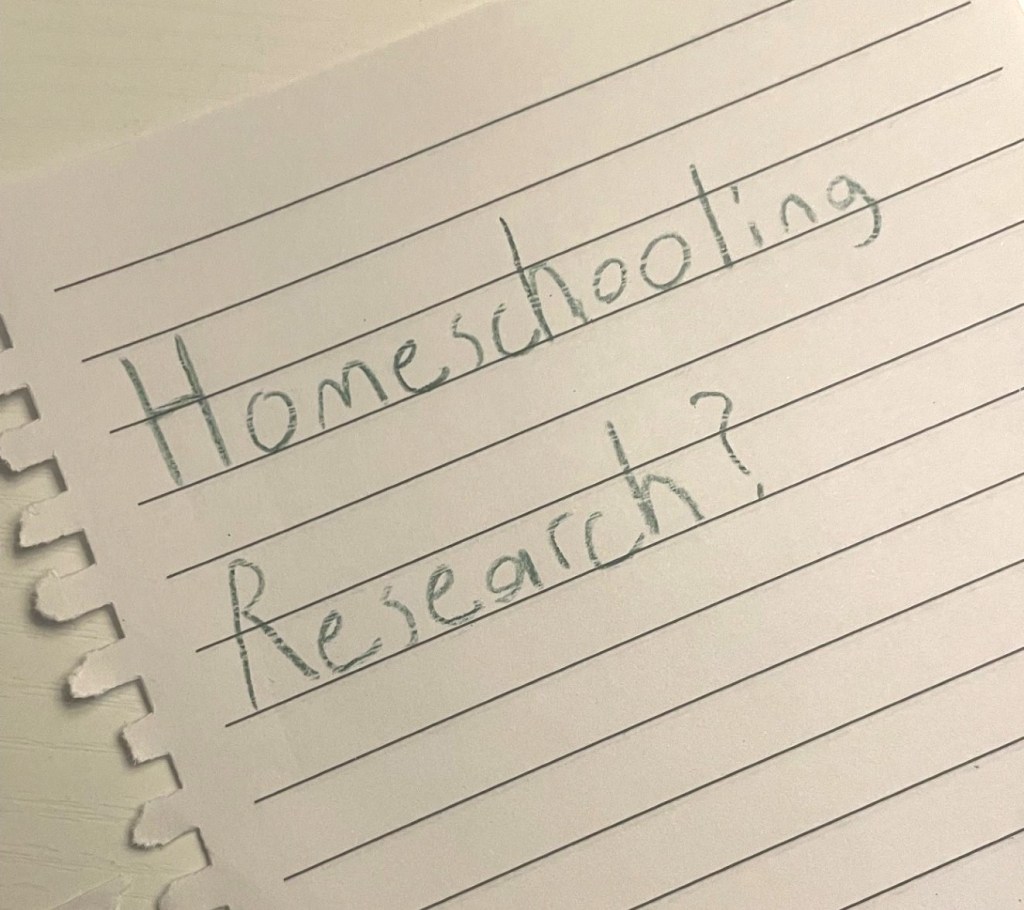 Homeschooling
Research?